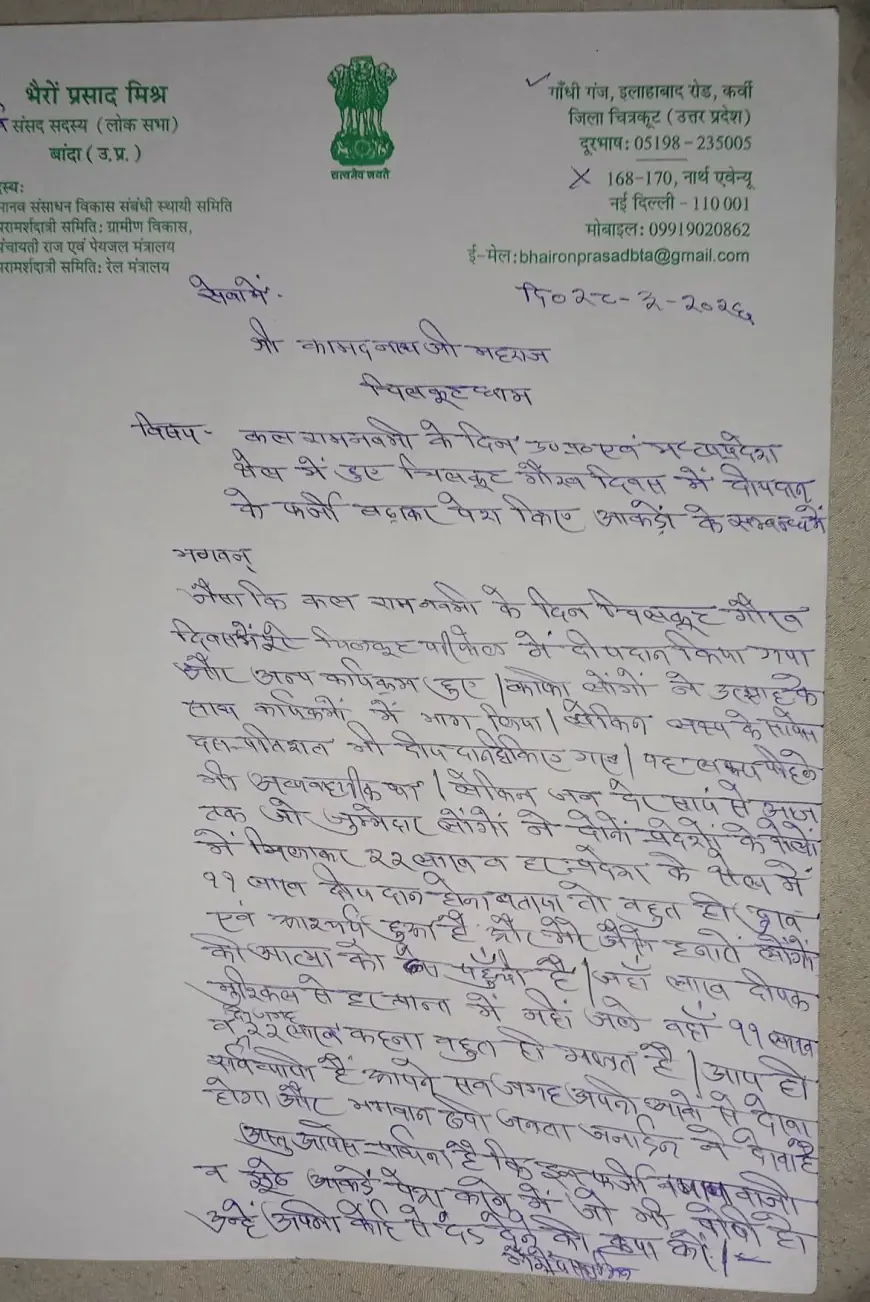 भैरों प्रसाद मिश्र
संसद सदस्य (लोक सभा)
बांदा ( उ.प्र. )
स्यः
मानव संसाधन विकास संबंधी स्थायी समिति
परामर्शदात्री समिति: ग्रामीण विकास,
पंचायती राज एवं पेयजल मंत्रालय
परामर्शदात्री समिति: रेल मंत्रालय
सत्यमेव जयते
गाँधी गंज, इलाहाबाद रोड, कर्वी
जिला चित्रकूट (उत्तर प्रदेश)
दूरभाष: 05198 - 235005
168-170, नार्थ एवेन्यू
नई दिल्ली - 110 001
मोबाइल: 09919020862
ई-मेल:bhaironprasadbta@gmail.com
सेवामें-
दि० २८-३-२०२६
श्री कामदनाथ जी महराज
चित्रकूट धाम
विषय- कल रामनवमी के दिन उ०प्र० एवं मध्यप्रदेश
क्षेत्र में हुए चित्रकूट गौरव दिवस में दीपदान
के फर्जी बढ़ाकर पेश किए आकड़ों के सम्बन्ध में
भगवन्
जैसा कि कल रामनवमी के दिन चित्रकूट गौरव
दिवस में पूरे चित्रकूट परिक्षेत्र में दीपदान किया गया
और अन्य कार्यक्रम हुए | काफी लोगों ने उत्साह के
साथ कार्यक्रमों में भाग लिया | लेकिन लक्ष्य के सापेक्ष
दस प्रतिशत भी दीपदान नहीं किए गए | यह लक्ष्य पहिले
भी अव्यवहारिक था | लेकिन जब देर सायं से आज
तक जो जुम्मेदार लोगों ने दोनों प्रदेशों के क्षेत्रों
में मिलाकर २२ लाख व हर प्रदेश के क्षेत्र में
११ लाख दीपदान होना बताया तो बहुत ही दुःख
एवं आश्चर्य हुआ है और मेरे जैसे हजारों लोगों
की आत्मा को पहुँची है | जहाँ लाख दीपक
मुश्किल से हर प्रान्त में नहीं जले वहाँ ११ लाख
व २२ लाख कहना बहुत ही गलत है | आप ही
सर्वव्यापी हैं आपने सब जगह अपनी आँखों से देखा
होगा और भगवान रूपी जनता जनार्दन ने देखा है
अस्तु आपसे प्रार्थना है कि इस फर्जी
व झूठे आकड़े पेश करने में जो भी दोषी हों
उन्हें अपनी ओर से दंड देने की कृपा करें |